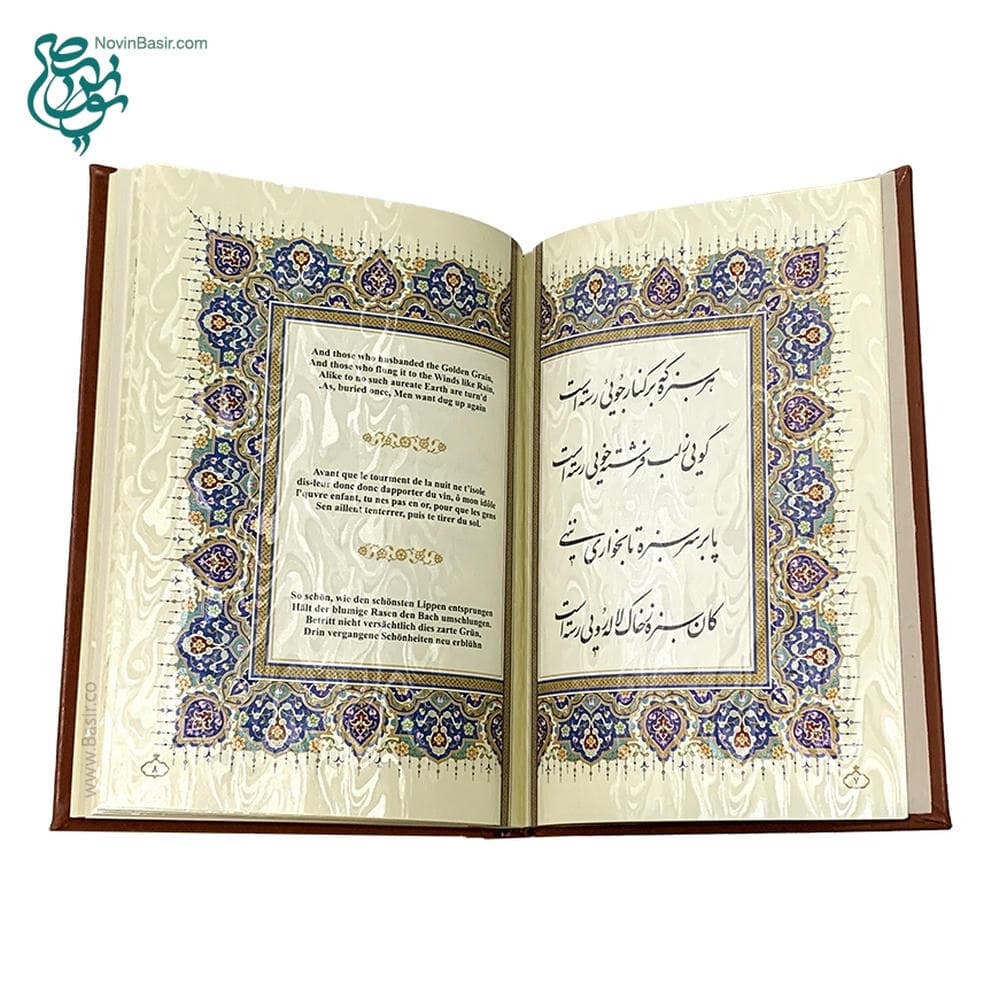 NovinBasir.com
هر سبزه که بر کنار جویی رسته است
گویی ز لب فرشته خویی رسته است
پا بر سر سبزه تا بخواری ننهی
کان سبزه ز خاک لاله رویی رسته است
۷
And those who husbanded the Golden Grain,
And those who flung it to the Winds like Rain,
Alike to no such aureate Earth are turn'd
.As, buried once, Men want dug up again
Avant que le tourment de la nuit ne t'isole
dis-leur donc donc dapporter du vin, ô mon idôle
l'quvre enfant, tu nes pas en or, pour que les gens
Sen aillent tenterrer, puis te tirer du sol.
So schön, wie den schönsten Lippen entsprungen
Hält der blumige Rasen den Bach umschlungen.
Betritt nicht versächtlich dies zarte Grün,
Drin vergangene Schönheiten neu erblühn
۸
www.Basir.co